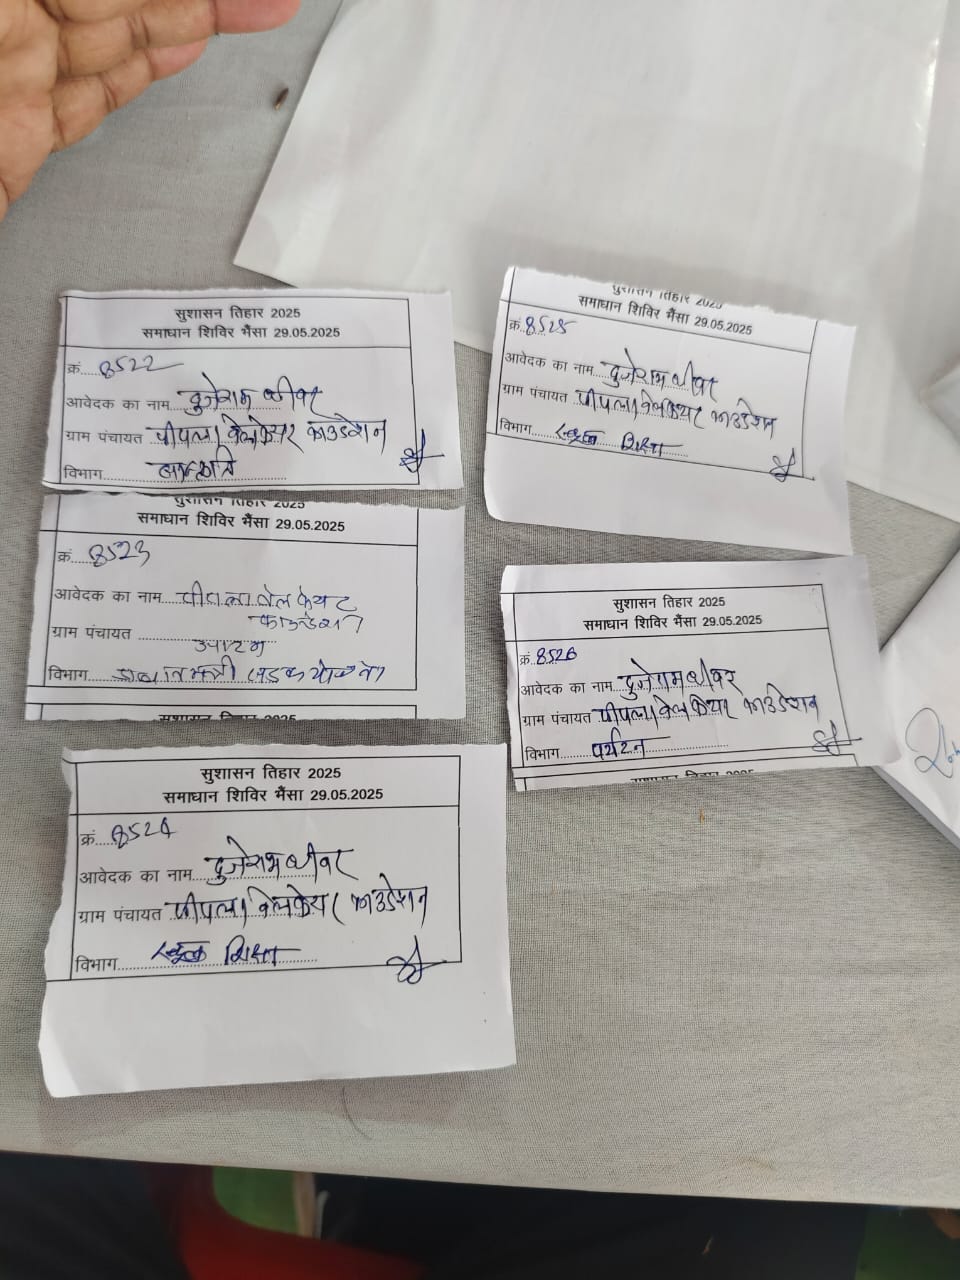 सुशासन तिहार 2025
समाधान शिविर भैंसा 29.05.2025
क्रं. 8522
आवेदक का नाम दुजेराम धीवर
ग्राम पंचायत पीपला वेलफेयर फाउंडेशन
विभाग
सुशासन तिहार 2025
समाधान शिविर भैंसा 29.05.2025
क्रं. 8523
आवेदक का नाम पीपला वेलफेयर
फाउंडेशन
ग्राम पंचायत
विभाग
सुशासन तिहार 2025
सुशासन तिहार 2025
समाधान शिविर भैंसा 29.05.2025
क्रं. 8524
आवेदक का नाम दुजेराम धीवर
ग्राम पंचायत पीपला वेलफेयर फाउंडेशन
विभाग स्कूल शिक्षा
सुशासन तिहार 2025
समाधान शिविर भैंसा 29.05.2025
क्रं. 8525
आवेदक का नाम दुजेराम धीवर
ग्राम पंचायत पीपला वेलफेयर फाउंडेशन
विभाग स्कूल शिक्षा
सुशासन तिहार 2025
समाधान शिविर भैंसा 29.05.2025
क्रं. 8526
आवेदक का नाम दुजेराम धीवर
ग्राम पंचायत पीपला वेलफेयर फाउंडेशन
विभाग पर्यटन
सुशासन तिहार 2025